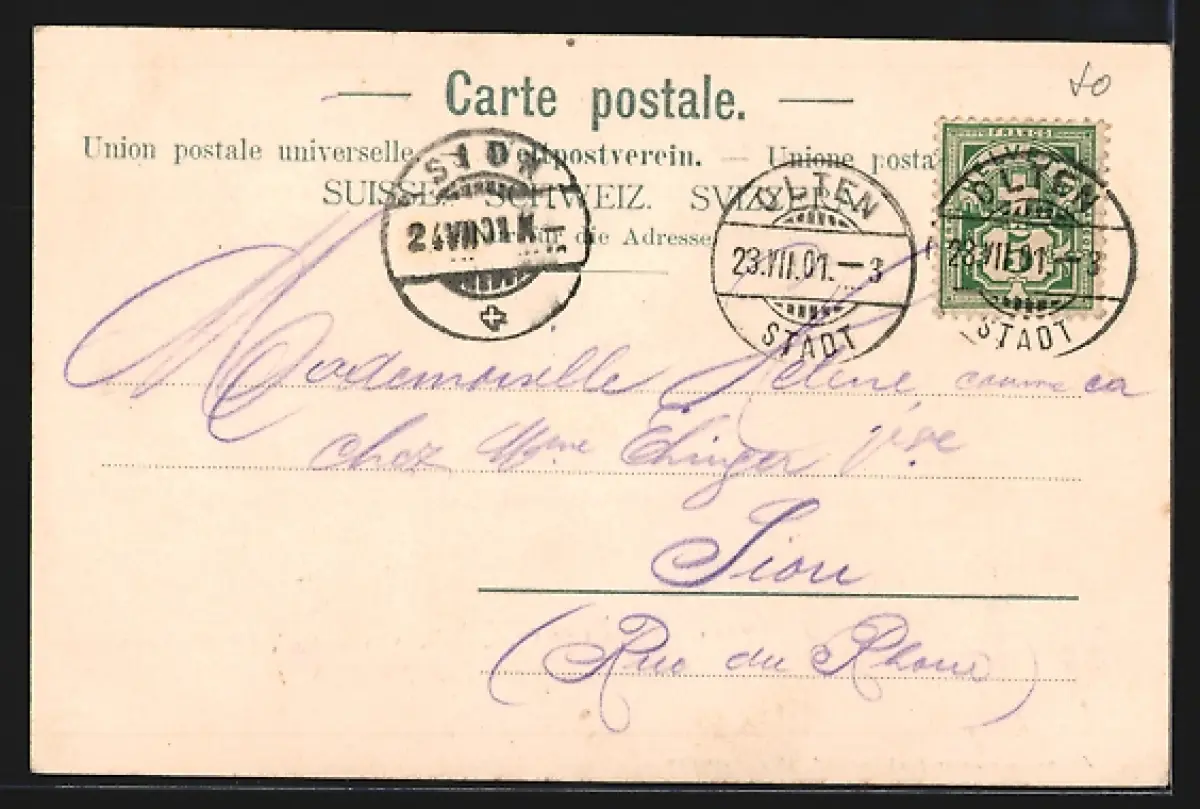 Carte postale.
Union postale universelle. — Weltpostverein. — Unione posta
SUISSE. SCHWEIZ. SVIZZERA.
Nur für die Adresse
SION
24.VII.01.IX—
OLTEN
23.VII.01.—3
STADT
FRANCO
HELVETIA
5
OLTEN
23.VII.01.—3
STADT
Mademoiselle Hélène
chez Mme Ehinger
Sion
(Rue du Rhône)